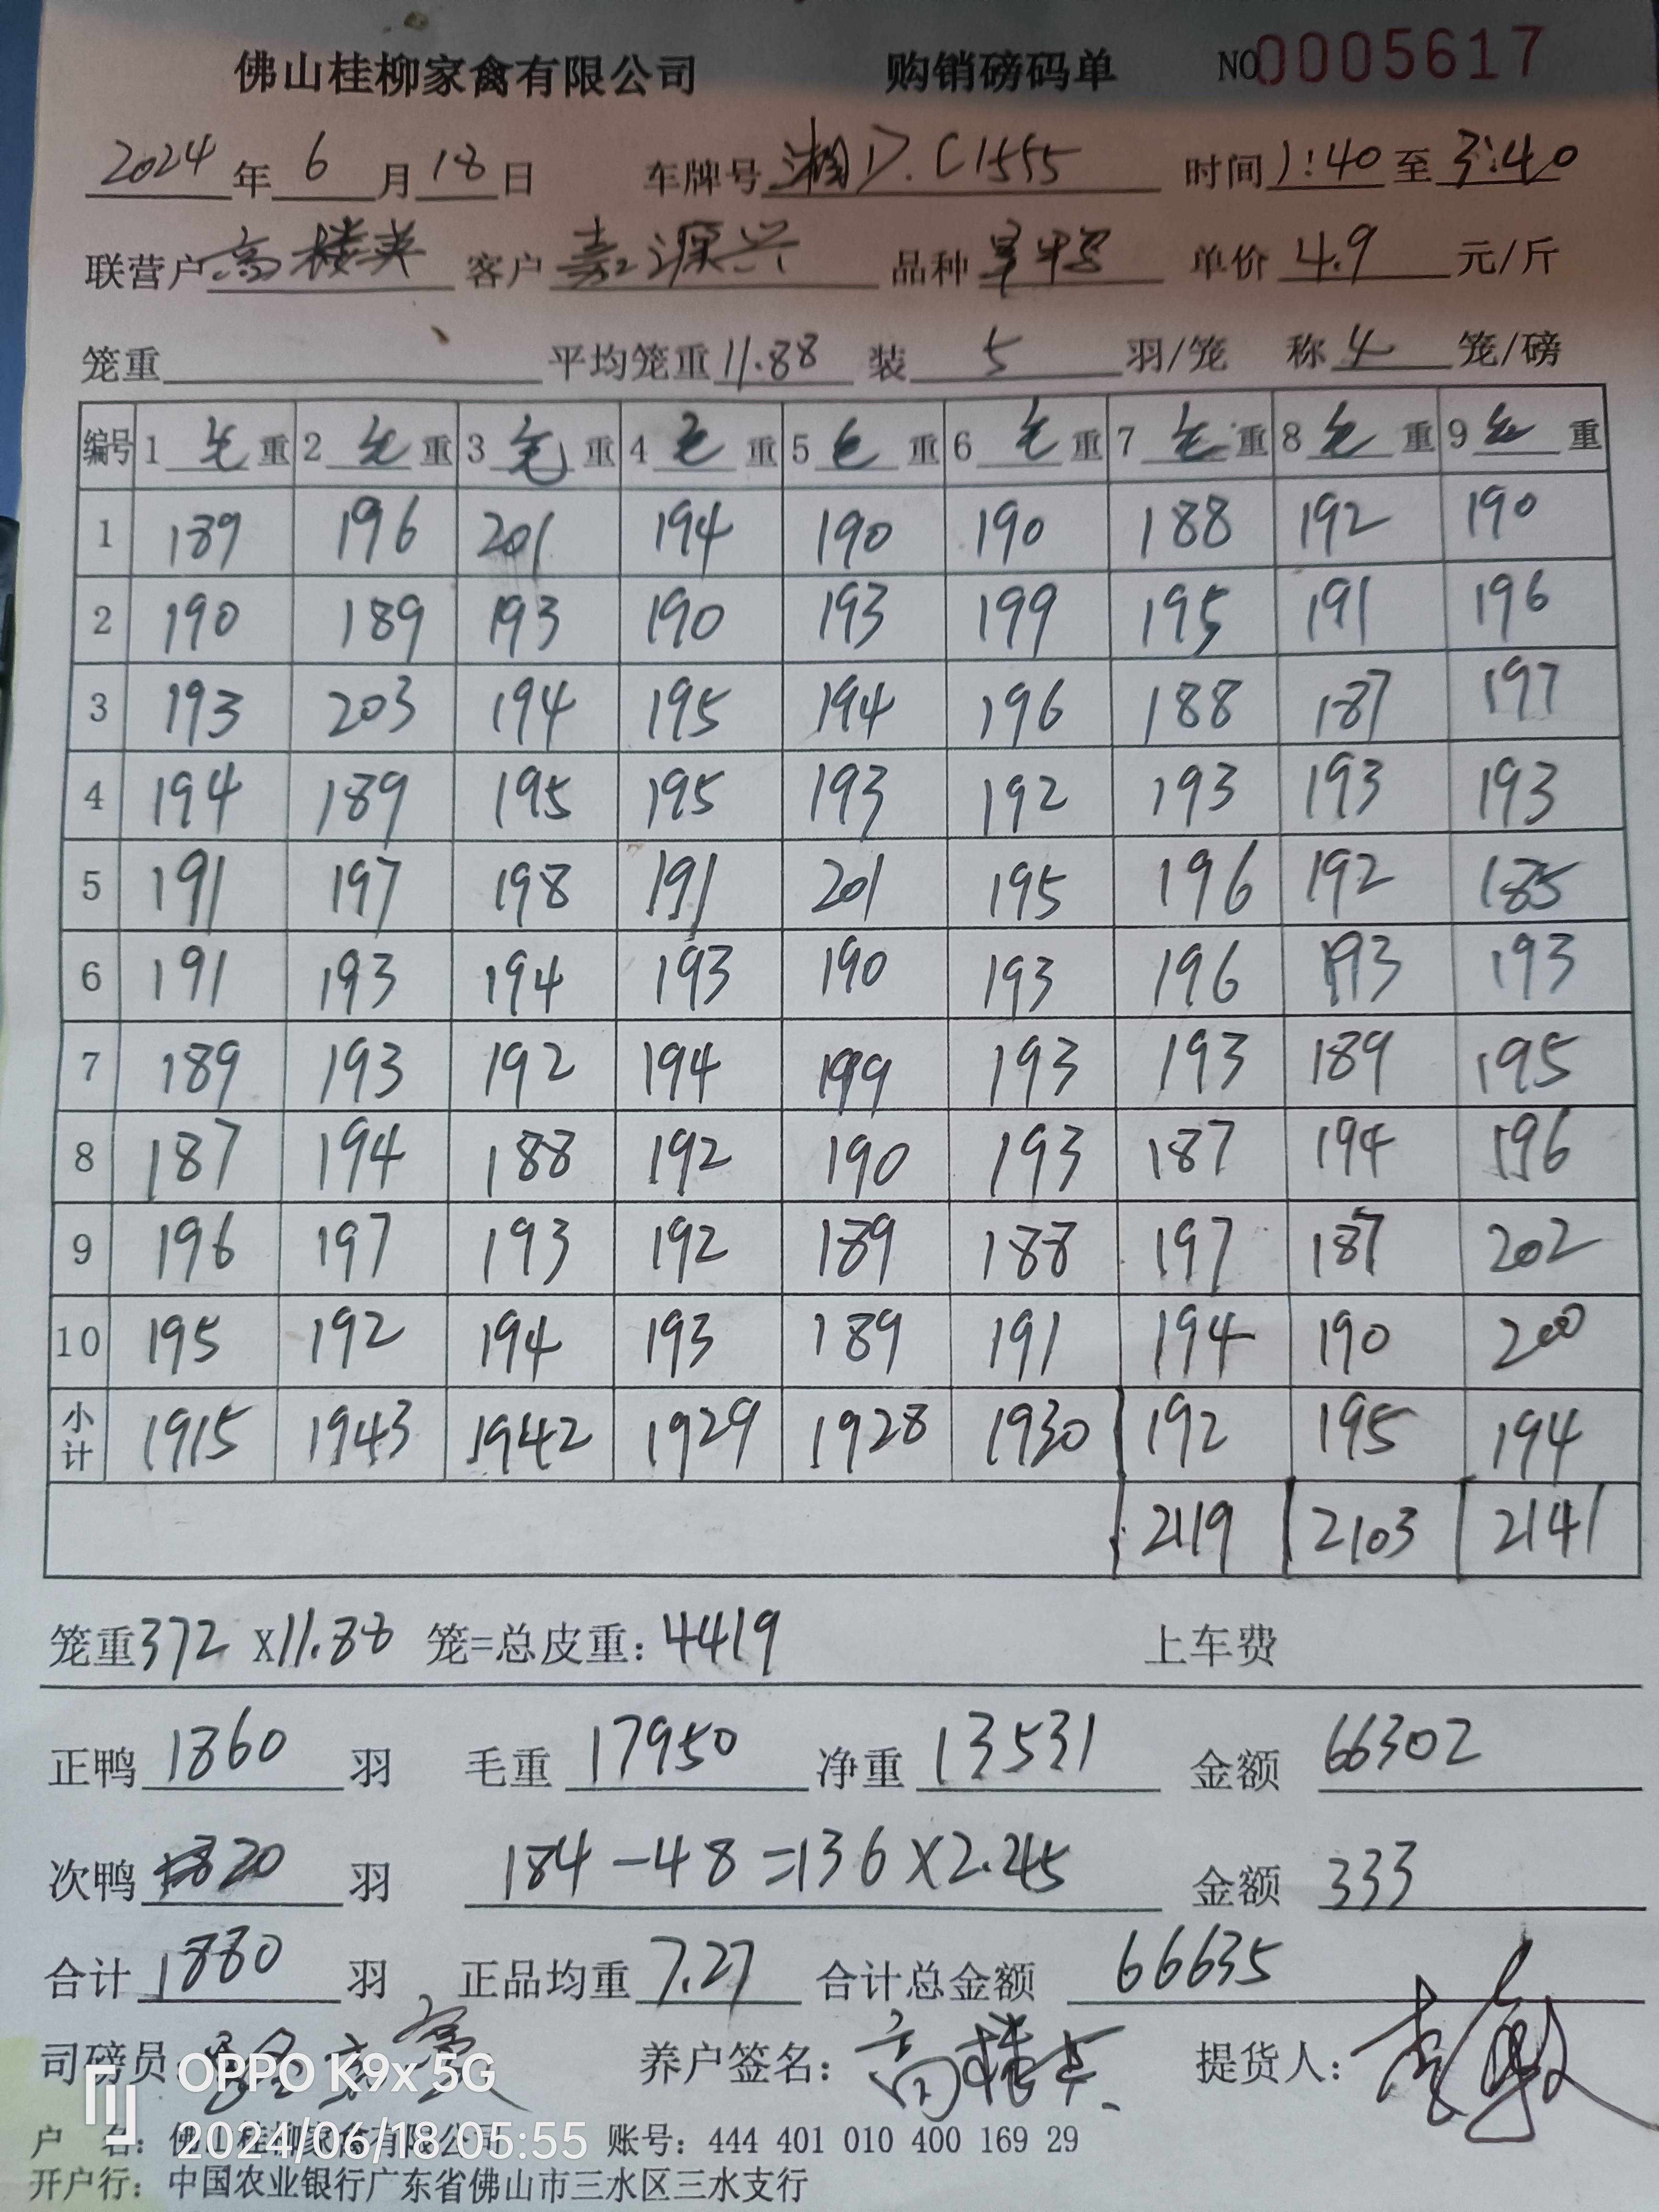 佛山桂柳家禽有限公司 购销磅码单 NO 0005617
2024 年 6 月 18 日 车牌号 湘D.C1555 时间 1:40 至 3:40
联营户 高楼英 客户 嘉源兴 品种 单价 4.9 元/斤
笼重 平均笼重 11.88 装 5 羽/笼 称 4 笼/磅
编号 1 毛 重 2 毛 重 3 毛 重 4 毛 重 5 毛 重 6 毛 重 7 毛 重 8 毛 重 9 毛 重
1 189 196 201 194 190 190 188 192 190
2 190 189 193 190 193 199 195 191 196
3 193 203 194 195 194 196 188 187 197
4 194 189 195 195 193 192 193 193 193
5 191 197 198 191 201 195 196 192 185
6 191 193 194 193 190 193 196 193 193
7 189 193 192 194 199 193 193 189 195
8 187 194 188 192 190 193 187 194 196
9 196 197 193 192 189 188 197 187 202
10 195 192 194 193 189 191 194 190 200
小计 1915 1943 1942 1929 1928 1930 192 195 194
2119 2103 2141
笼重 372 X11.88 笼=总皮重: 4419 上车费
正鸭 1860 羽 毛重 17950 净重 13531 金额 66302
次鸭 20 羽 184-48=136X2.45 金额 333
合计 1880 羽 正品均重 7.27 合计总金额 66635
司磅员 养户签名: 高楼英 提货人:
OPPO K9x 5G
2024/06/18 05:55
户 名: 佛山桂柳家禽有限公司 账号: 444 401 010 400 169 29
开户行: 中国农业银行广东省佛山市三水区三水支行